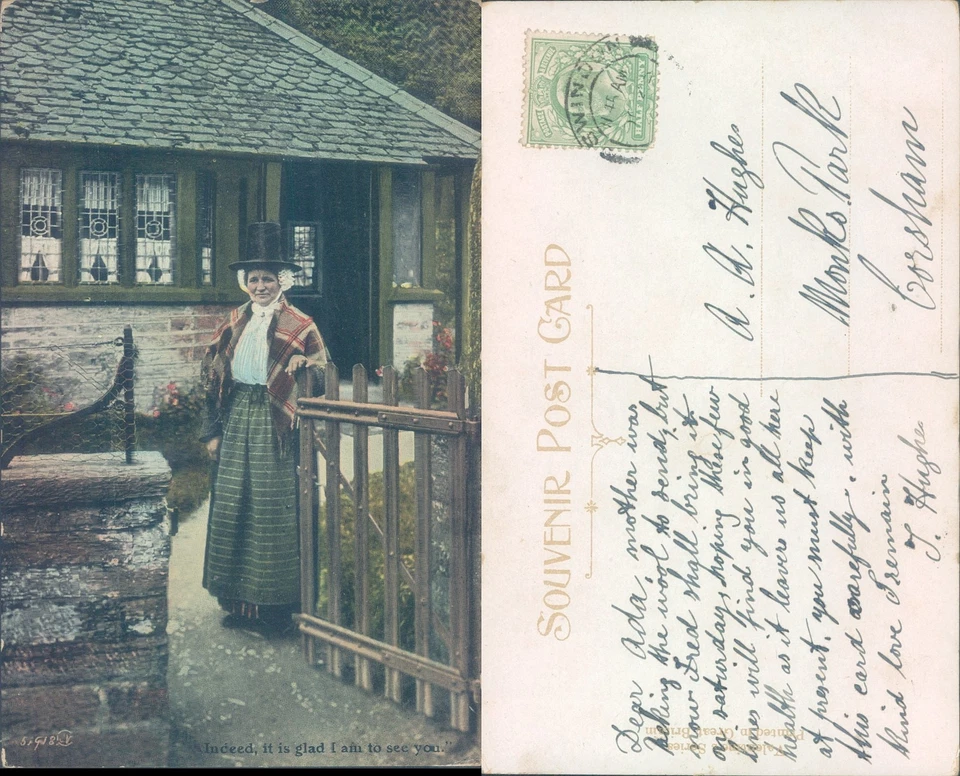 "Indeed, it is glad I am to see you."
SOUVENIR POST CARD
SWINDON
HALFPENNY
A. A. Hughes
Monks Park
Corsham
Dear Ada, mother was
asking the wool to send, but
our Fred shall bring it
on saturday, hoping these few
lines will find you in good
health as it leaves us all here
at present. you must keep
this card carefully. with
kind love I remain
T. Hughes
Series
Printed in Great Britain